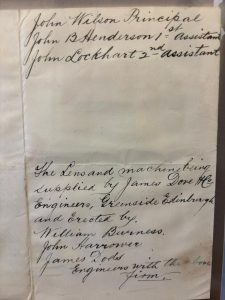 John Wilson Principal
John B Henderson 1st Assistant
John Lockhart 2nd Assistant
The Lens and machine being
supplied by James Dove & Co
Engineers, Greenside Edinburgh
and Erected by,
William Burness.
John Harrower
James Dods
Engineers with the above
firm.